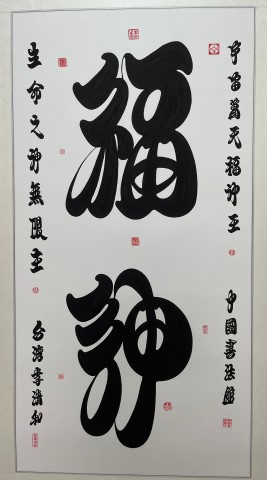 宇宙萬天福神至
中國書法
福
神
生命之神無限主
台灣李清和